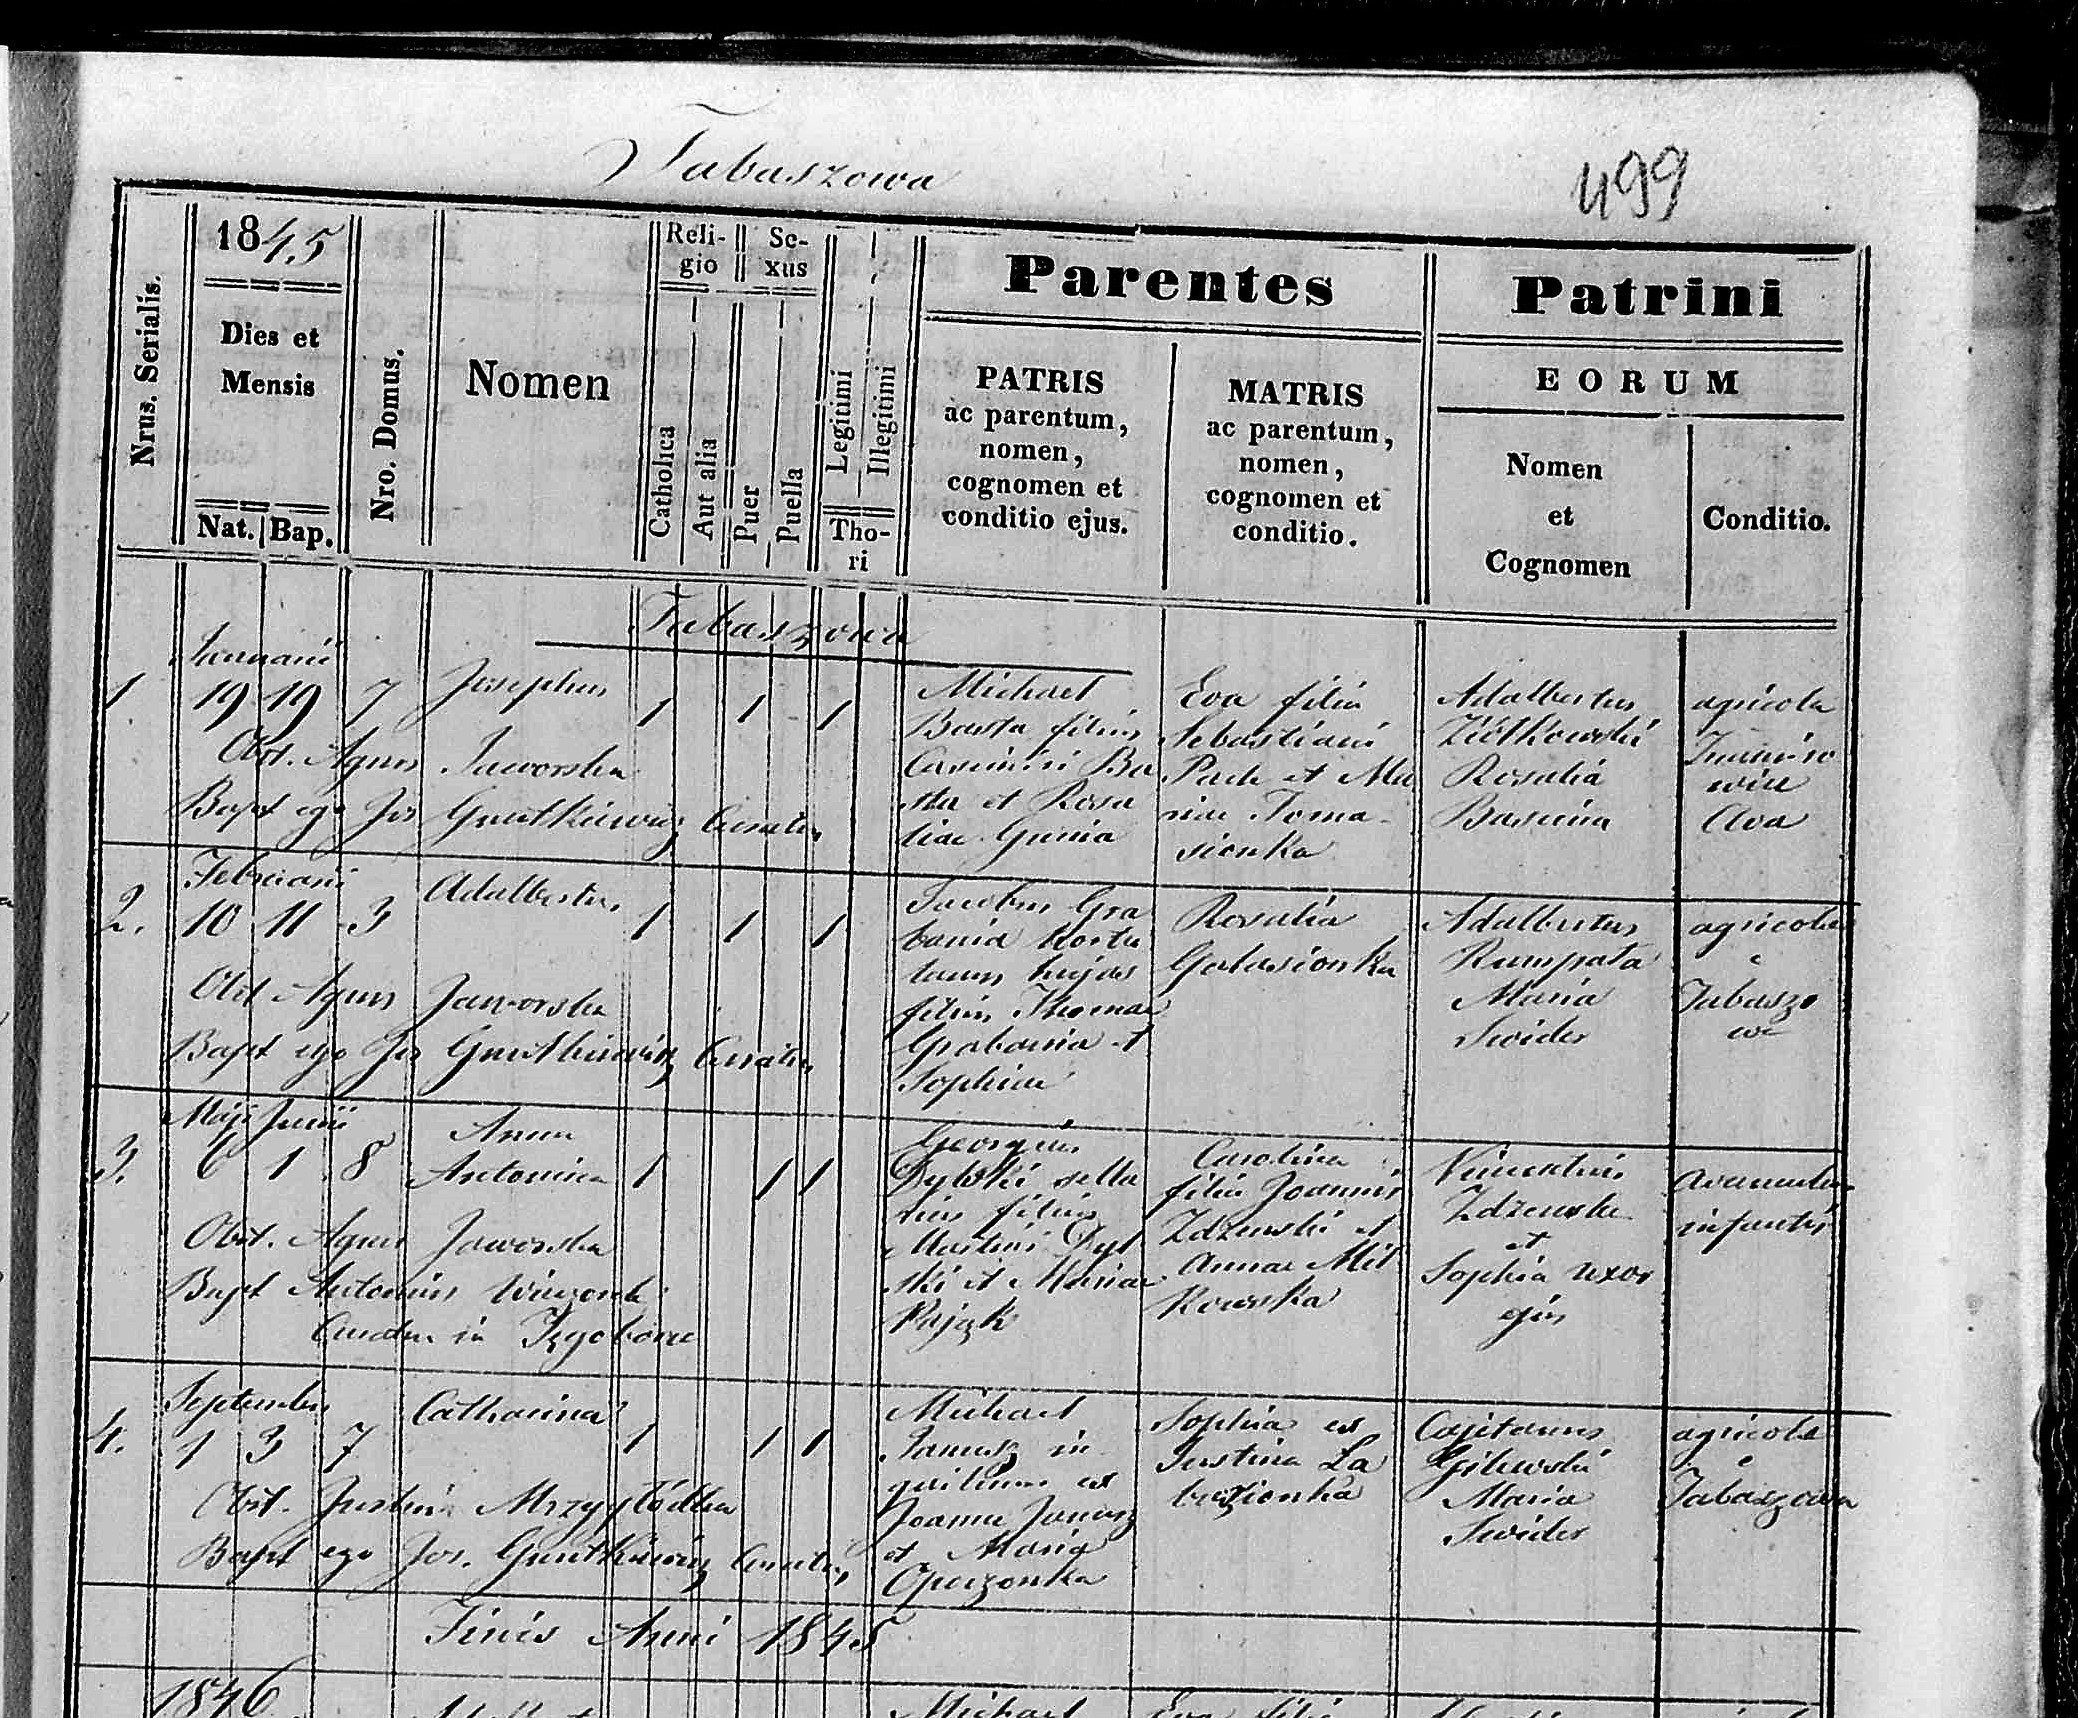 Tabaszowa
499
Nrus. Serialis.
1845
Dies et
Mensis
Nat. Bap.
Nro. Domus.
Nomen
Reli-
gio
Catholica
Aut alia
Se-
xus
Puer
Puella
Legitimi
Illegitimi
Tho-
ri
Parentes
PATRIS
ac parentum,
nomen,
cognomen et
conditio ejus.
MATRIS
ac parentum,
nomen,
cognomen et
conditio.
Patrini
EORUM
Nomen
et
Cognomen
Conditio.
Tabaszowa
Januarii
1 19 19 7 Josephus 1 1 1
Obst. Agnes Jaworska
Bapt ego Jos Curatus
Michael
Basta filius
Casimiri Ba
sta et Rosa
liae Gunia
Eva filia
Sebastiani
Pach et Ma
riae Toma-
sionka
Adalbertus
Ziółkowski
Rosalia
agricola
Februarii
2. 10 11 3 Adalbertus 1 1 1
Obst Agnes Jaworska
Bapt ego Jos Curatus
Jacobus Gra
bania hortu
lanus hujas
filius Thomae
Grabania et
Sophiae
Rosalia
Galasionka
Adalbertus
Rumpata
Maria
Swider
agricola
e
Tabaszo
wa
Maji Junii
3. 6 1 8 Anna
Antonina 1 1 1
Obst. Agnes Jaworska
Bapt Antonius
Curatus in
Georgius
Dylski sella
rius filius
Martini Dyl
ski et Mariae
Pająk
Carolina
filia Joannis
Zdzenski et
Annae Mit
kowska
Vincentius
Zdzenski
et
Sophia uxor
ejus
infantis
Septembris
4. 1 3 7 Catharina 1 1 1
Obst. Justina
Bapt ego Jos. Curatus
Michael
Janusz in
quilinus ex
Joanne Janusz
et Maria
Sophia ex
Justina La
Cajetanus
Gilewski
Maria
Swider
agricola
e
Tabaszowa
Finis Anni 1845
1846
Michael
Eva filia